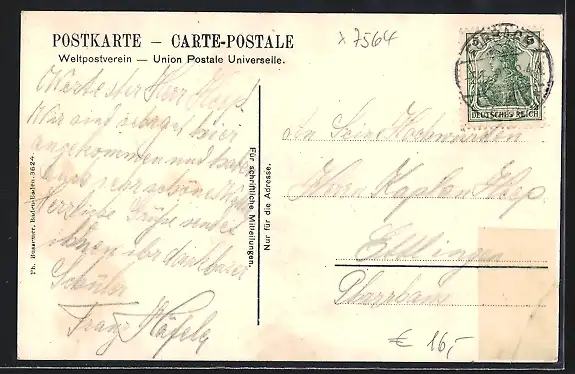 POSTKARTE – CARTE-POSTALE
Weltpostverein — Union Postale Universelle.
x 7564
DEUTSCHES REICH
Wertester Herr Heip!
Wir sind hier
angekommen und
sehr schöne
Herzliche Grüße sendet
Ihnen Ihr dankbarer
Schüler
Franz
Ph. Hussemer, Baden-Baden. 3624.
Für schriftliche Mitteilungen.
Nur für die Adresse.
An Seine Hochwürden
Herrn Kaplan Heip
Ettlingen
Pfarrhaus
€ 16,-